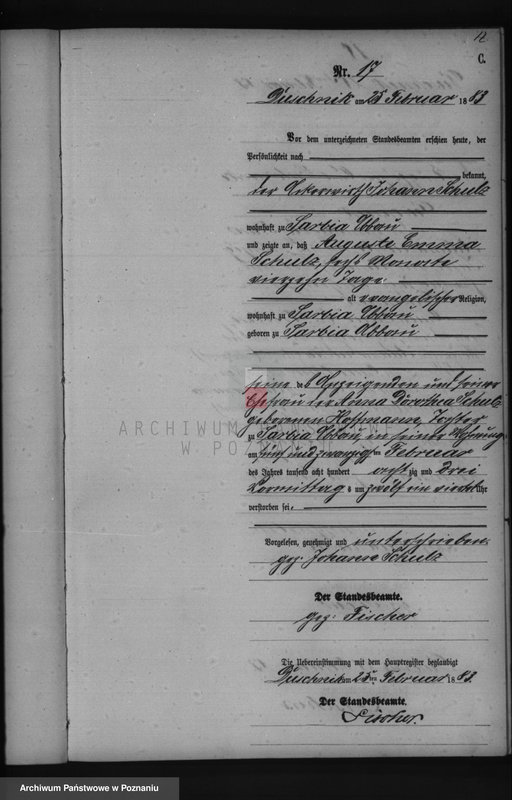 12
C.
Nr. 17
Duschnik am 25 Februar 1883
Vor dem unterzeichneten Standesbeamten erschien heute, der
Persönlichkeit nach
bekannt,
der Ackerwirth Johann Schulz
wohnhaft zu Sarbia Abbau
und zeigte an, daß Auguste Emma
Schulz, sechs Monate
vierzehn Tage
alt evangelischer Religion,
wohnhaft zu Sarbia Abbau
geboren zu Sarbia Abbau
des Anzeigenden und seiner
Ehefrau der Anna Dorothea Schulz
geborenen Hoffmann, Tochter
zu Sarbia Abbau in seiner Wohnung
am fünf und zwanzigsten Februar
des Jahres tausend acht hundert achtzig und drei
Vormittags um zwölf ein viertel Uhr
verstorben sei.
Vorgelesen, genehmigt und unterschrieben
gez. Johann Schulz
Der Standesbeamte.
gez. Fischer
Die Uebereinstimmung mit dem Hauptregister beglaubigt
Duschnik am 25ten Februar 1883.
Der Standesbeamte.
Fischer.
ARCHIWUM PAŃSTWOWE
W POZNANIU
Archiwum Państwowe w Poznaniu